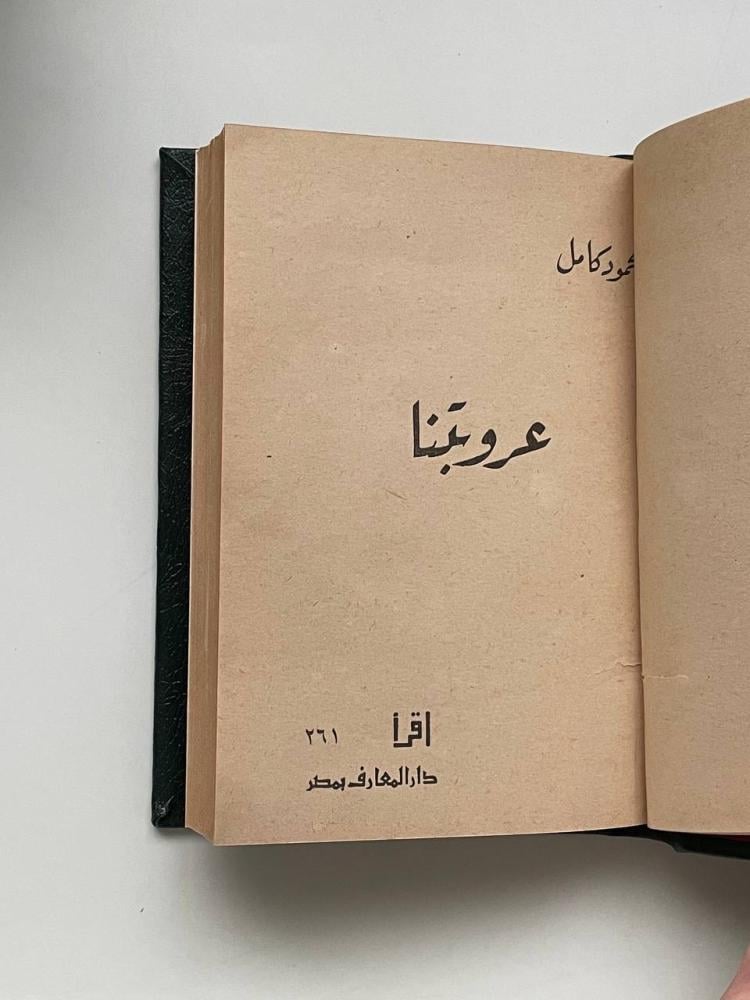 محمود كامل
عروبتنا
اقرأ ٢٦١
دار المعارف بمصر